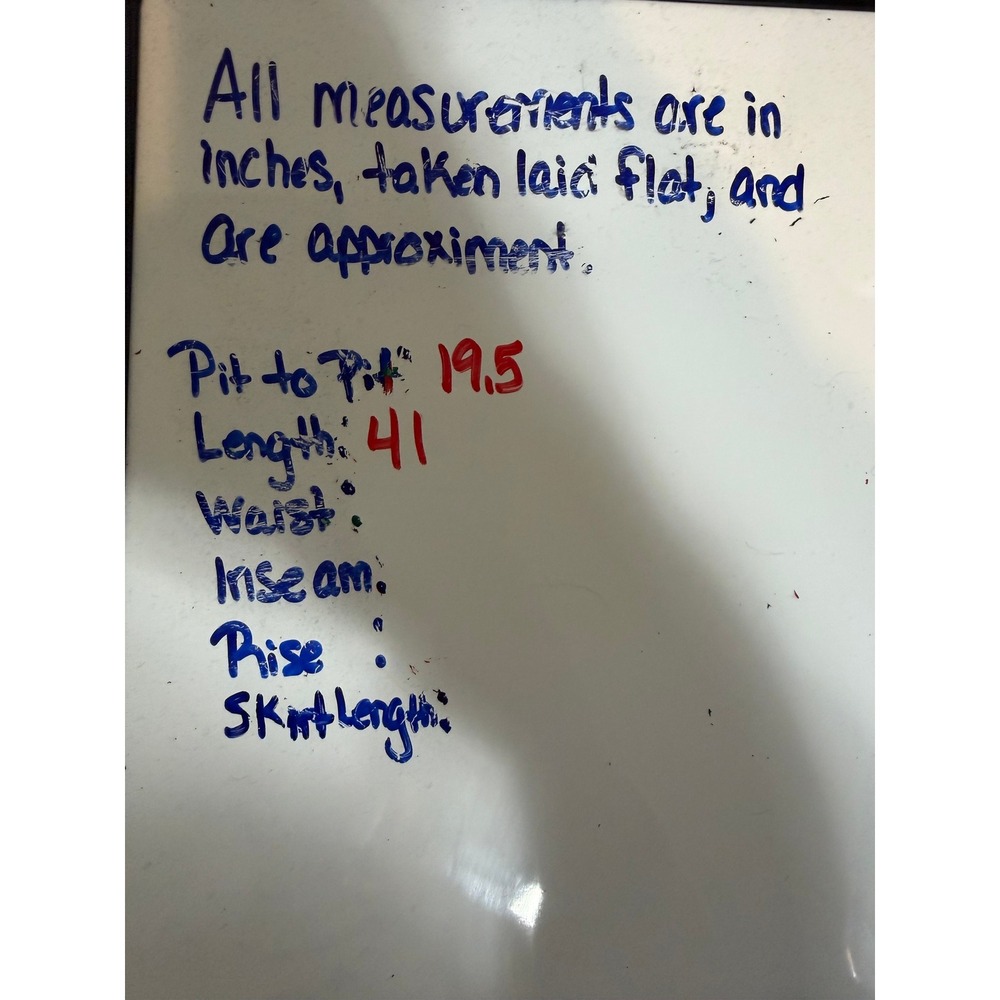 All measurements are in
inches, taken laid flat, and
are approximent.
Pit to Pit: 19.5
Length: 41
Waist:
Inseam:
Rise :
Skirt Length: